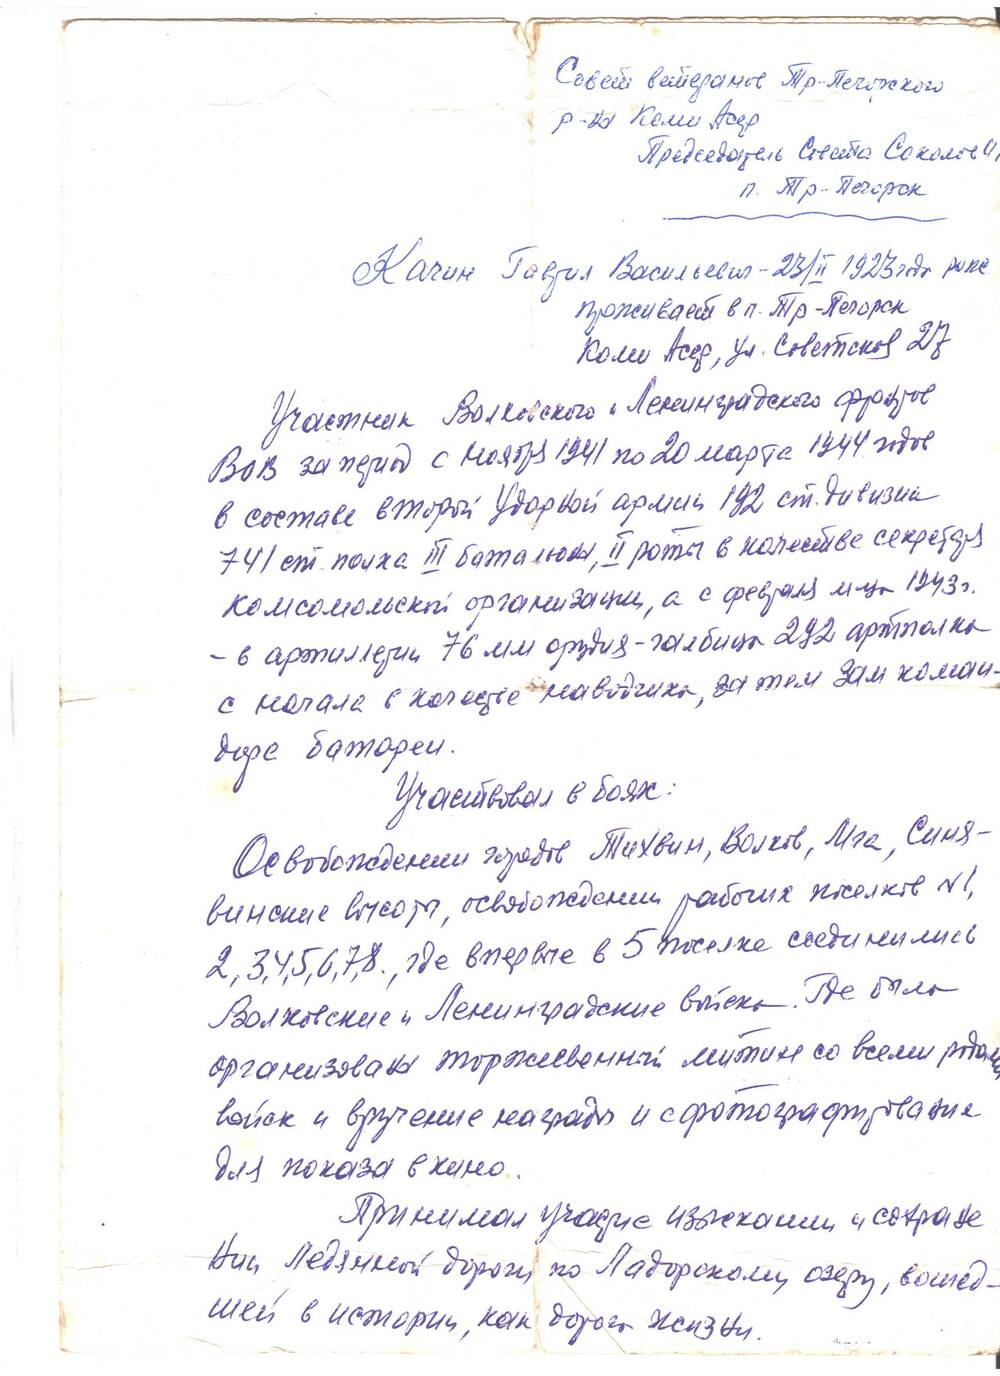 Совет ветеранов Тр-Печорского
р-на Коми Асср
Председатель Совета Соколов
п. Тр-Печорск
Качин Гаврил Васильевич - 23/II 1923 года
проживает в п. Тр-Печорск
Коми Асср, ул. Советская 27
Участник Волховского и Ленинградского фронтов
ВОВ за период с ноября 1941 по 20 марта 1944 годов
в составе второй Ударной армии 192 ст. дивизии
741 ст. полка III баталиона, II роты в качестве секретаря
комсомольской организации, а с февраля м-ца 1943 г.
- в артиллерии 76 мм орудия - гаубица 292 артполка
с начала в качестве наводчика, затем зам коман-
дира батареи.
Участвовал в боях:
Освобождении городов Тихвин, Волхов, Мга, Синя-
винские высоты, освобождении рабочих поселков №1,
2, 3, 4, 5, 6, 7, 8., где впервые в 5 поселке соединились
Волховские и Ленинградские войска. Где было
организован торжественный митинг со всеми родами
войск и вручение награды и сфотографирование
для показа в кино.
Принимал участие изыскании и сохране
нии Ледянной дороги по Ладорскому озеру, вошед-
шей в истории, как дорога жизни.